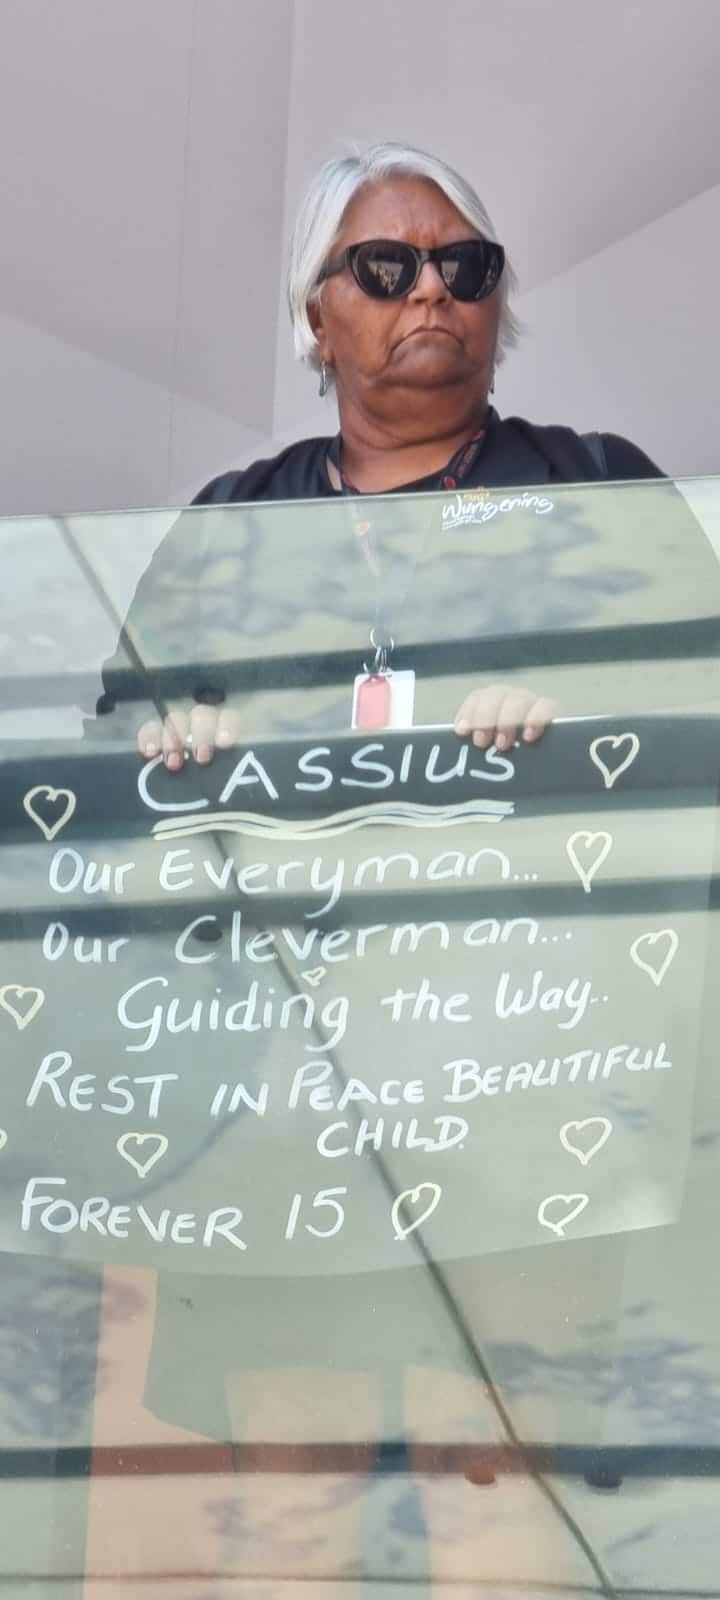 Wungening
CASSIUS
Our Everyman...
Our Cleverman...
Guiding the Way..
REST IN PEACE BEAUTIFUL
CHILD.
FOREVER 15